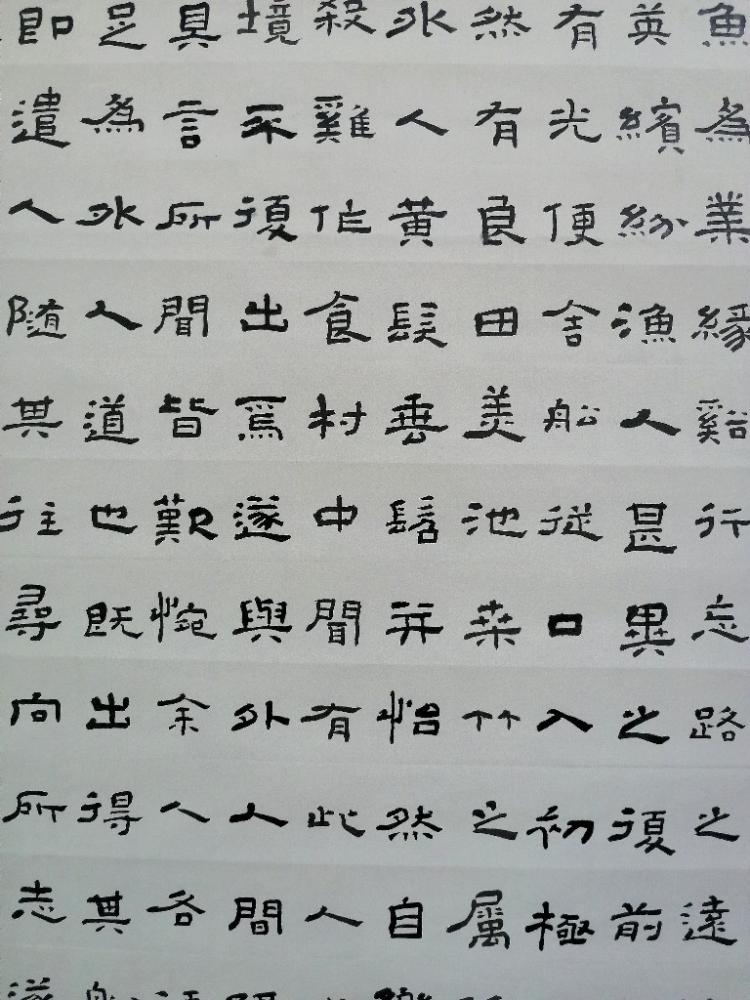 魚為業緣谿行忘路之遠
英繽紛漁人甚異之復前
有光便舍船從口入初極
然有良田美池桑竹之属
外人黃髮垂髫并怡然自
殺雞作食村中聞有此人
境不復出焉遂與外人間
具言所聞皆歎惋余人各
足為外人道也既出得其
即遣人随其往尋向所志